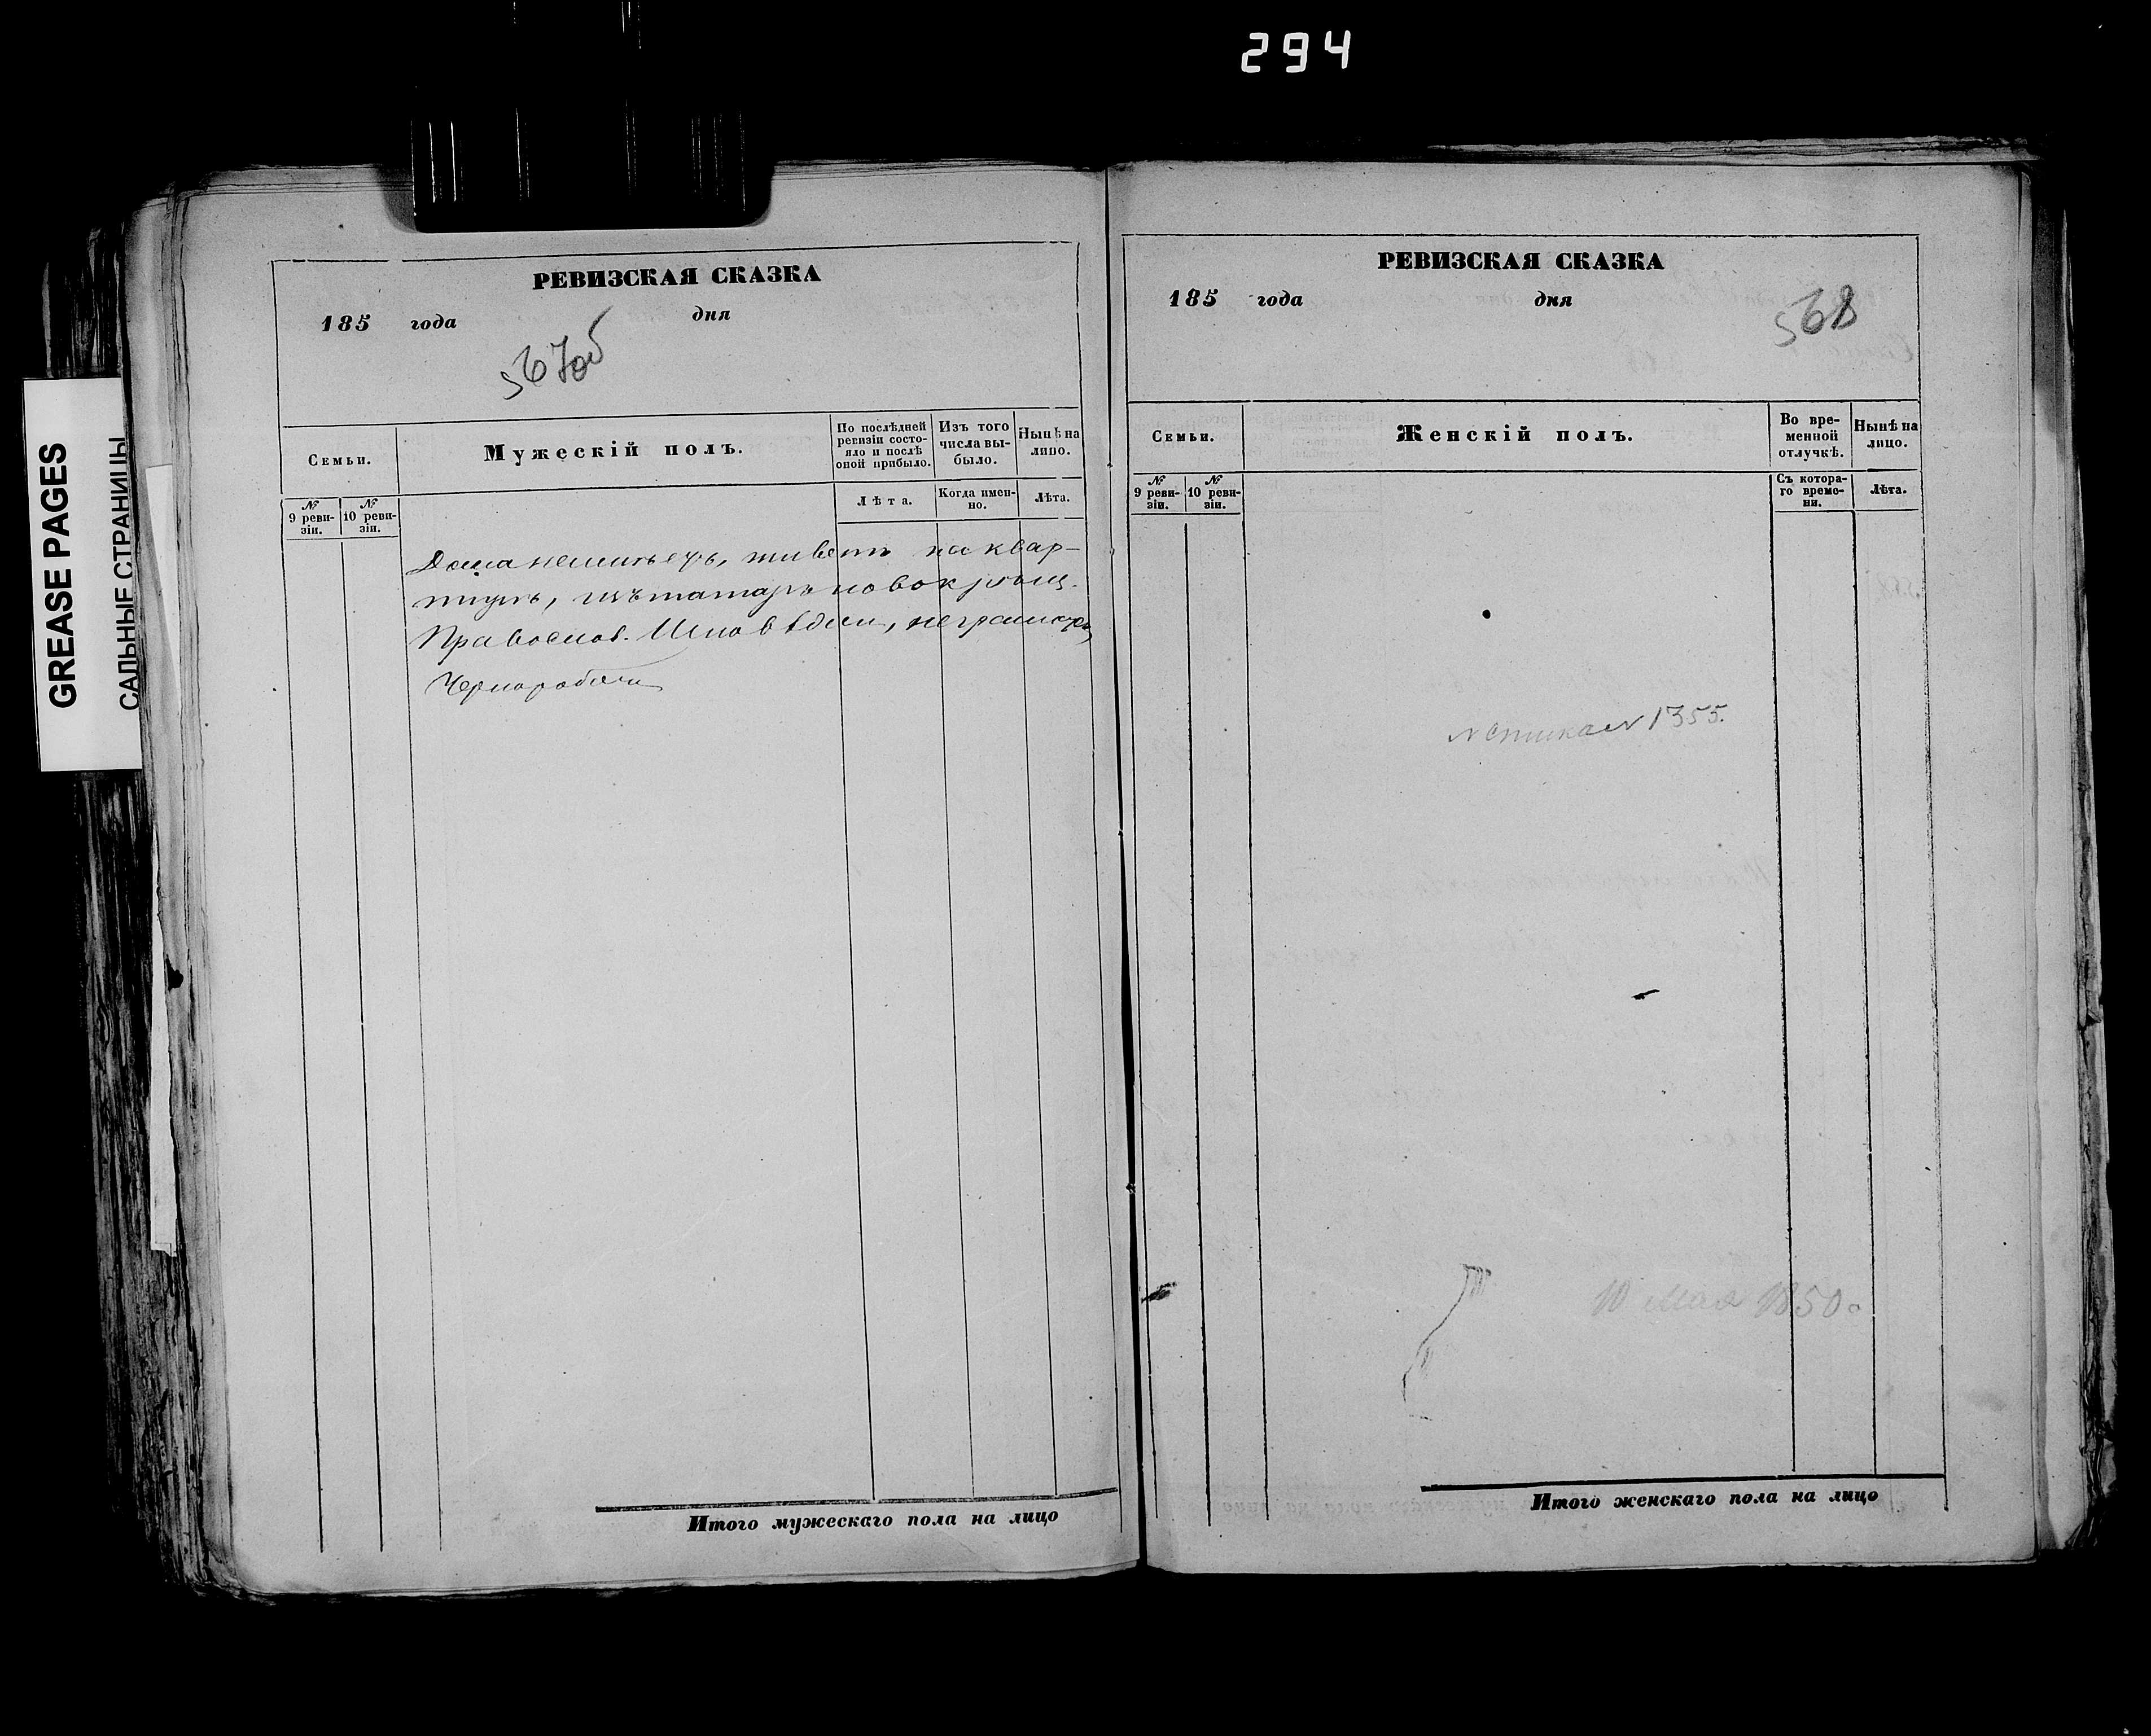 294
GREASE PAGES
САЛЬНЫЕ СТРАНИЦЫ
РЕВИЗСКАЯ СКАЗКА
185 года дня
567об
Семьи.
Мужескій полъ.
По послѣдней ревизіи состояло и послѣ оной прибыло.
Изъ того числа выбыло.
Нынѣ на лицо.
№ 9 ревизіи.
№ 10 ревизіи.
Лѣта.
Когда именно.
Лѣта.
Дома неимѣетъ, живетъ на квар-
тирѣ, изъ татаръ новокрещ.
Православ. Исповѣдан, неграмотн,
Чернорабочи
Итого мужескаго пола на лицо
РЕВИЗСКАЯ СКАЗКА
185 года дня
568
Семьи.
Женскій полъ.
Во временной отлучкѣ.
Нынѣ на лицо.
№ 9 ревизіи.
№ 10 ревизіи.
Съ котораго времени.
Лѣта.
№ 1355.
10 Мая 1850
Итого женскаго пола на лицо